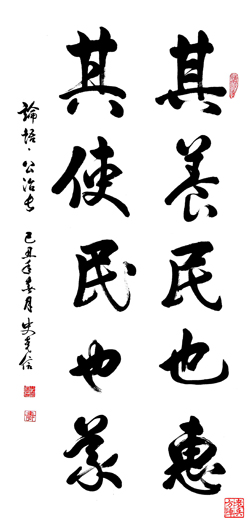 其養民也惠
其使民也義
論語·公冶長 己丑年春月史幸信